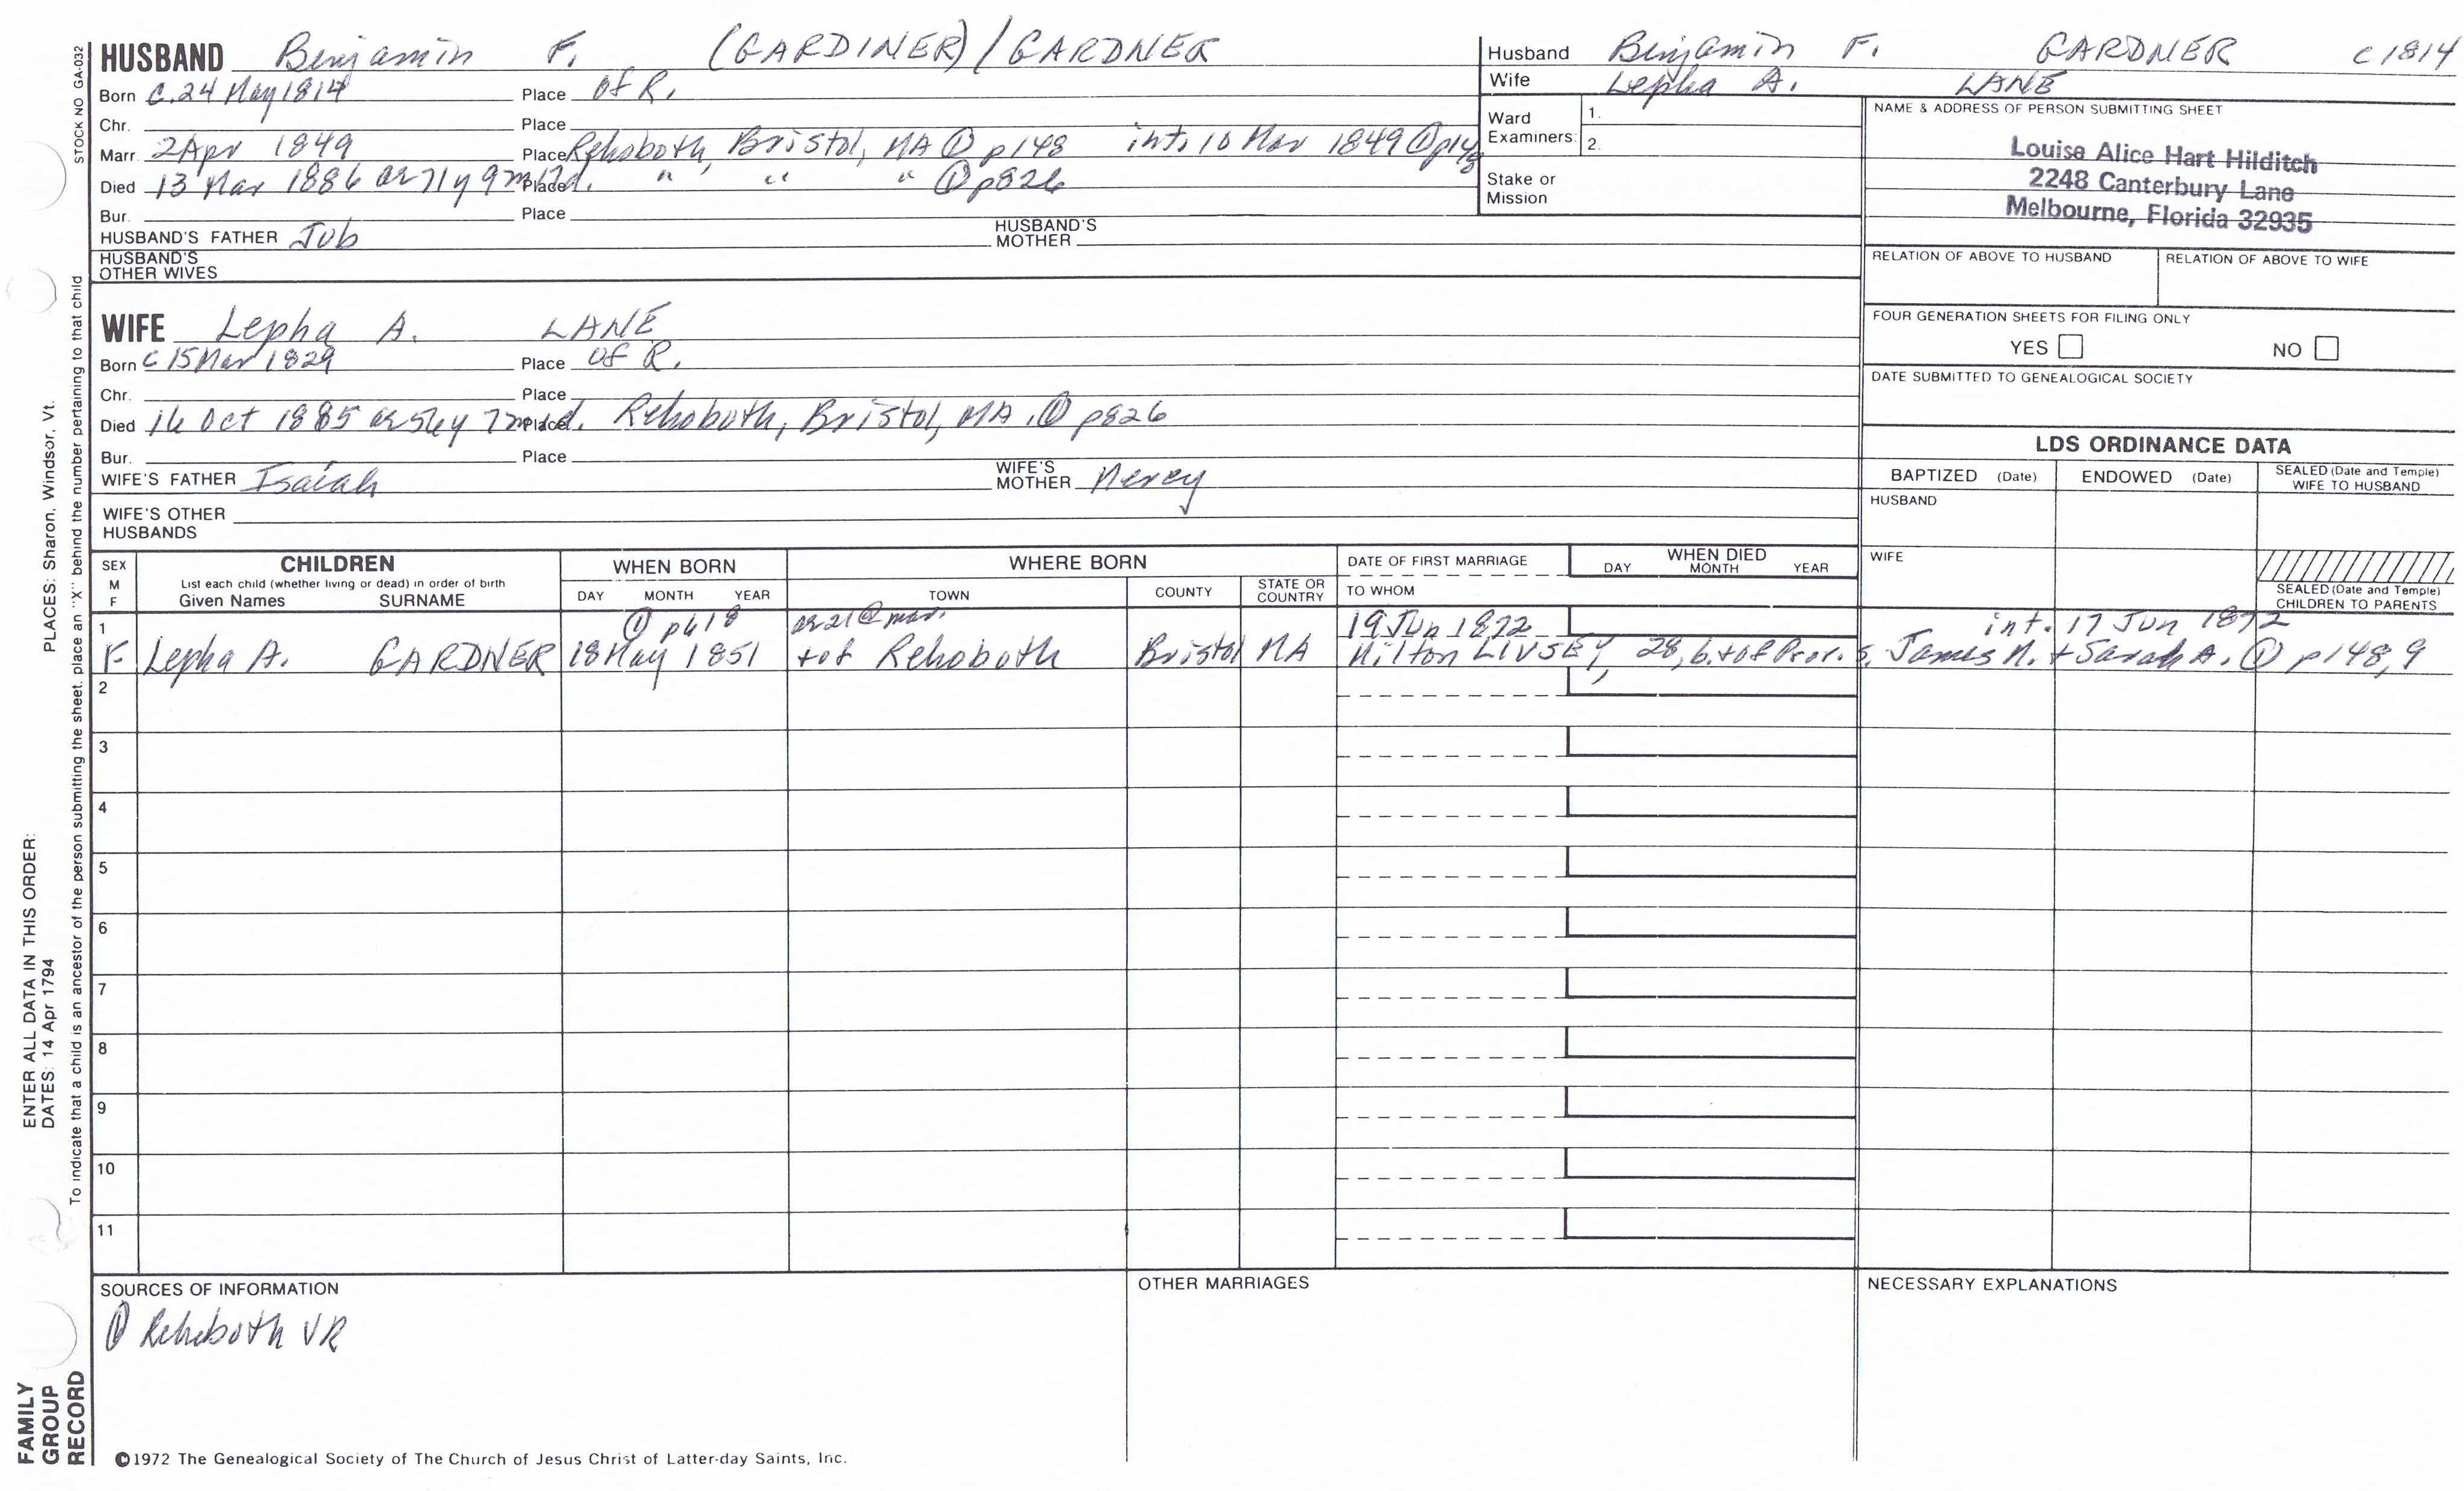 HUSBAND Benjamin F. (GARDINER)/GARDNER
Born c.24 May 1814 Place of R.
Chr. Place
Marr. 2 Apr 1849 Place Rehoboth, Bristol, MA ① p148 int. 10 Mar 1849 ① p148
Died 13 Mar 1886 ae 71y 9m Place " " " ① p826
Bur. Place
HUSBAND'S FATHER Job HUSBAND'S MOTHER
HUSBAND'S OTHER WIVES
Husband Benjamin F. GARDNER c1814
Wife Lepha A. LANE
Ward Examiners: 1.
2.
Stake or Mission
NAME & ADDRESS OF PERSON SUBMITTING SHEET
Louise Alice Hart Hilditch
2248 Canterbury Lane
Melbourne, Florida 32935
RELATION OF ABOVE TO HUSBAND RELATION OF ABOVE TO WIFE
FOUR GENERATION SHEETS FOR FILING ONLY
YES NO
DATE SUBMITTED TO GENEALOGICAL SOCIETY
WIFE Lepha A. LANE
Born c 15 Mar 1829 Place of R.
Chr. Place
Died 16 Oct 1885 ae 56y 7m Place Rehoboth, Bristol, MA. ① p826
Bur. Place
WIFE'S FATHER Isaiah WIFE'S MOTHER Mercy
WIFE'S OTHER HUSBANDS
LDS ORDINANCE DATA
BAPTIZED (Date) ENDOWED (Date) SEALED (Date and Temple) WIFE TO HUSBAND
HUSBAND
WIFE
SEALED (Date and Temple) CHILDREN TO PARENTS
SEX M F
CHILDREN
List each child (whether living or dead) in order of birth
Given Names SURNAME
WHEN BORN
DAY MONTH YEAR
WHERE BORN
TOWN COUNTY STATE OR COUNTRY
DATE OF FIRST MARRIAGE
TO WHOM
WHEN DIED
DAY MONTH YEAR
1 ① p618 ae 21 @ mar. 19 Jun 1872 int. 17 Jun 1872
F Lepha A. GARDNER 18 May 1851 + of Rehoboth Bristol MA Milton LIVSEY, 28, b. + of Prov. s. James M. + Sarah A. ① p148,9
2
3
4
5
6
7
8
9
10
11
SOURCES OF INFORMATION
① Rehoboth VR
OTHER MARRIAGES
NECESSARY EXPLANATIONS
©1972 The Genealogical Society of The Church of Jesus Christ of Latter-day Saints, Inc.
STOCK NO GA-032
To indicate that a child is an ancestor of the person submitting the sheet, place an "X" behind the number pertaining to that child
ENTER ALL DATA IN THIS ORDER:
DATES: 14 Apr 1794
PLACES: Sharon, Windsor, Vt.
FAMILY
GROUP
RECORD